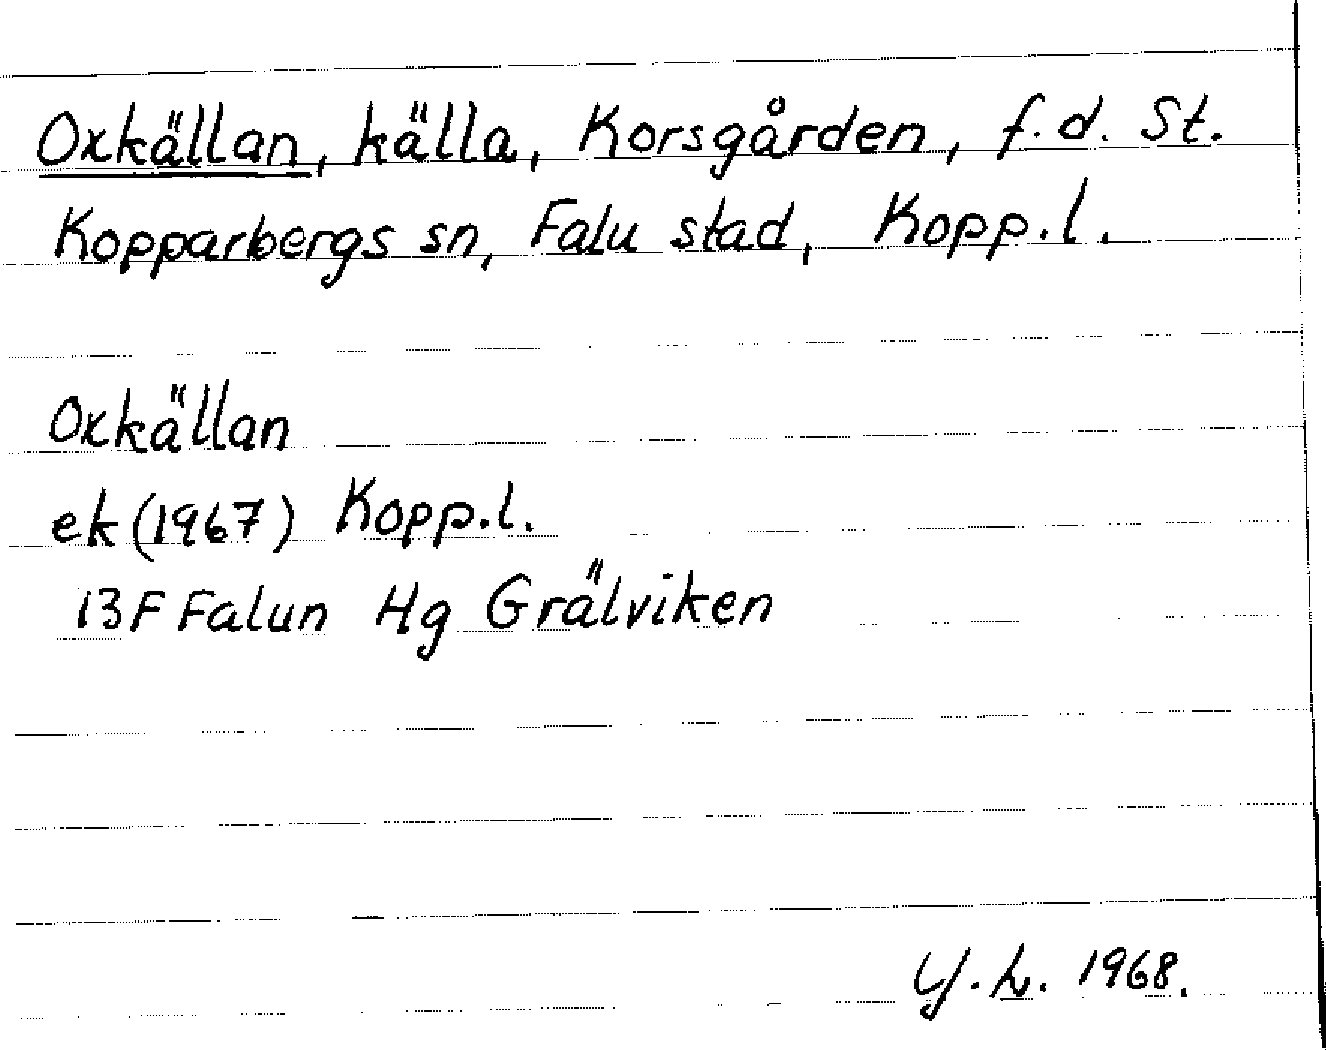 Oxkällan, källa, Korsgården, f.d. St.
Kopparbergs sn, Falu stad, Kopp.l.
Oxkällan
ek (1967) Kopp.l.
13F Falun Hg Grälviken
Y.L. 1968.